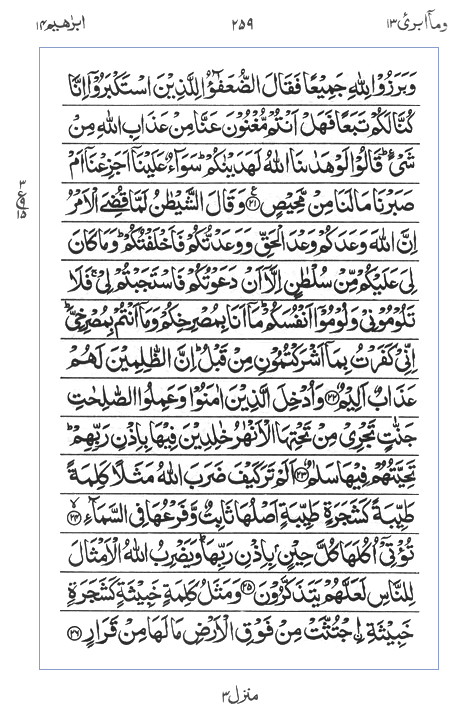 وماۤ ابرئ ١٣ ٢٥٩ ابرٰهیم ١٤
وَبَرَزُوْا لِلّٰهِ جَمِیْعًا فَقَالَ الضُّعَفٰٓؤُا لِلَّذِیْنَ اسْتَكْبَرُوْۤا اِنَّا
كُنَّا لَكُمْ تَبَعًا فَهَلْ اَنْتُمْ مُّغْنُوْنَ عَنَّا مِنْ عَذَابِ اللّٰهِ مِنْ
شَیْءٍ ؕ قَالُوْا لَوْ هَدٰىنَا اللّٰهُ لَهَدَیْنٰكُمْ ؕ سَوَآءٌ عَلَیْنَاۤ اَجَزِعْنَاۤ اَمْ
صَبَرْنَا مَا لَنَا مِنْ مَّحِیْصٍ ﴿٢١﴾ ع وَقَالَ الشَّیْطٰنُ لَمَّا قُضِیَ الْاَمْرُ
ع
٣
١٥
اِنَّ اللّٰهَ وَعَدَكُمْ وَعْدَ الْحَقِّ وَوَعَدْتُّكُمْ فَاَخْلَفْتُكُمْ ؕ وَمَا كَانَ
لِیَ عَلَیْكُمْ مِّنْ سُلْطٰنٍ اِلَّاۤ اَنْ دَعَوْتُكُمْ فَاسْتَجَبْتُمْ لِیْ ۚ فَلَا
تَلُوْمُوْنِیْ وَلُوْمُوْۤا اَنْفُسَكُمْ ؕ مَاۤ اَنَا بِمُصْرِخِكُمْ وَمَاۤ اَنْتُمْ بِمُصْرِخِیَّ ؕ
اِنِّیْ كَفَرْتُ بِمَاۤ اَشْرَكْتُمُوْنِ مِنْ قَبْلُ ؕ اِنَّ الظّٰلِمِیْنَ لَهُمْ
عَذَابٌ اَلِیْمٌ ﴿٢٢﴾ وَاُدْخِلَ الَّذِیْنَ اٰمَنُوْا وَعَمِلُوا الصّٰلِحٰتِ
جَنّٰتٍ تَجْرِیْ مِنْ تَحْتِهَا الْاَنْهٰرُ خٰلِدِیْنَ فِیْهَا بِاِذْنِ رَبِّهِمْ ؕ
تَحِیَّتُهُمْ فِیْهَا سَلٰمٌ ﴿٢٣﴾ اَلَمْ تَرَ كَیْفَ ضَرَبَ اللّٰهُ مَثَلًا كَلِمَةً
طَیِّبَةً كَشَجَرَةٍ طَیِّبَةٍ اَصْلُهَا ثَابِتٌ وَّفَرْعُهَا فِی السَّمَآءِ ﴿٢٤﴾ ۙ
تُؤْتِیْۤ اُكُلَهَا كُلَّ حِیْنٍۭ بِاِذْنِ رَبِّهَا ؕ وَیَضْرِبُ اللّٰهُ الْاَمْثَالَ
لِلنَّاسِ لَعَلَّهُمْ یَتَذَكَّرُوْنَ ﴿٢٥﴾ وَمَثَلُ كَلِمَةٍ خَبِیْثَةٍ كَشَجَرَةٍ
خَبِیْثَةِ ِ۟اجْتُثَّتْ مِنْ فَوْقِ الْاَرْضِ مَا لَهَا مِنْ قَرَارٍ ﴿٢٦﴾
منزل ٣